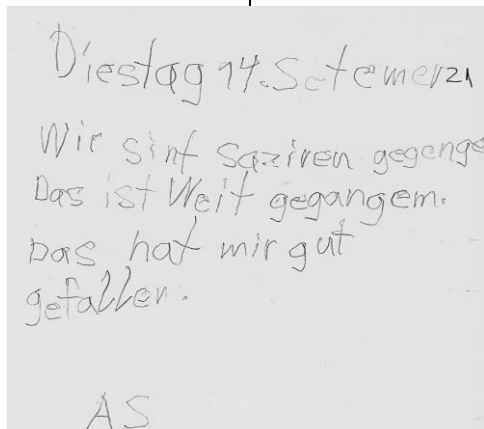 Diestag 14. Setemer 21
Wir sint saziren gegenge
Das ist Weit gegangem.
Das hat mir gut
gefallen.
AS